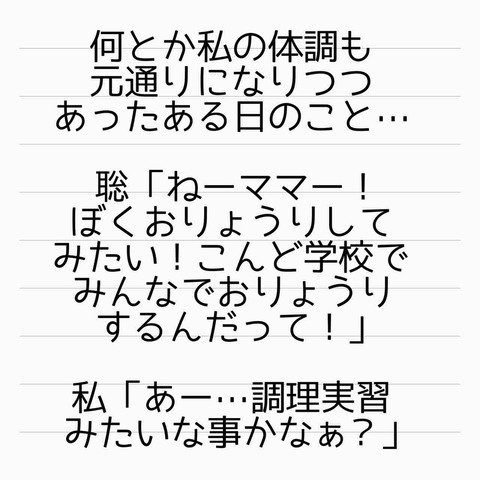 何とか私の体調も
元通りになりつつ
あったある日のこと…
聡「ねーママー！
ぼくおりょうりして
みたい！こんど学校で
みんなでおりょうり
するんだって！」
私「あー…調理実習
みたいな事かなぁ？」